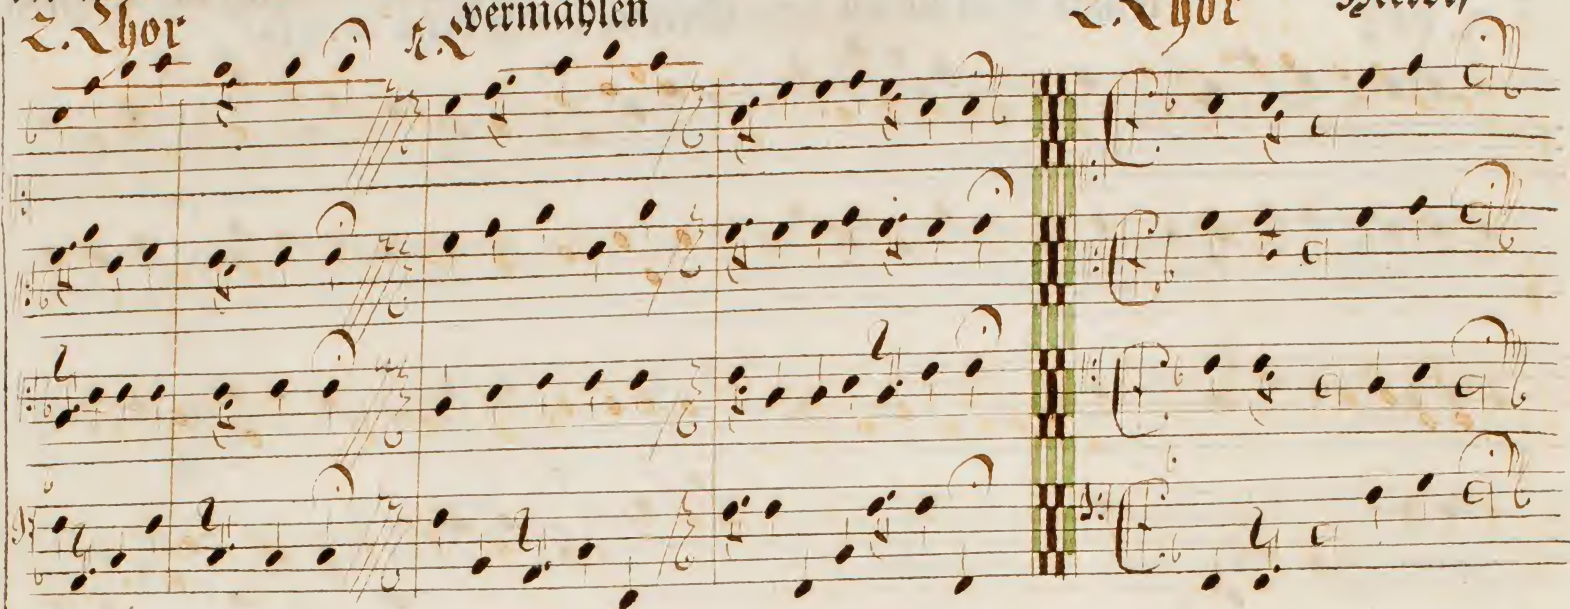 2. Chor vermählen 2. Chor